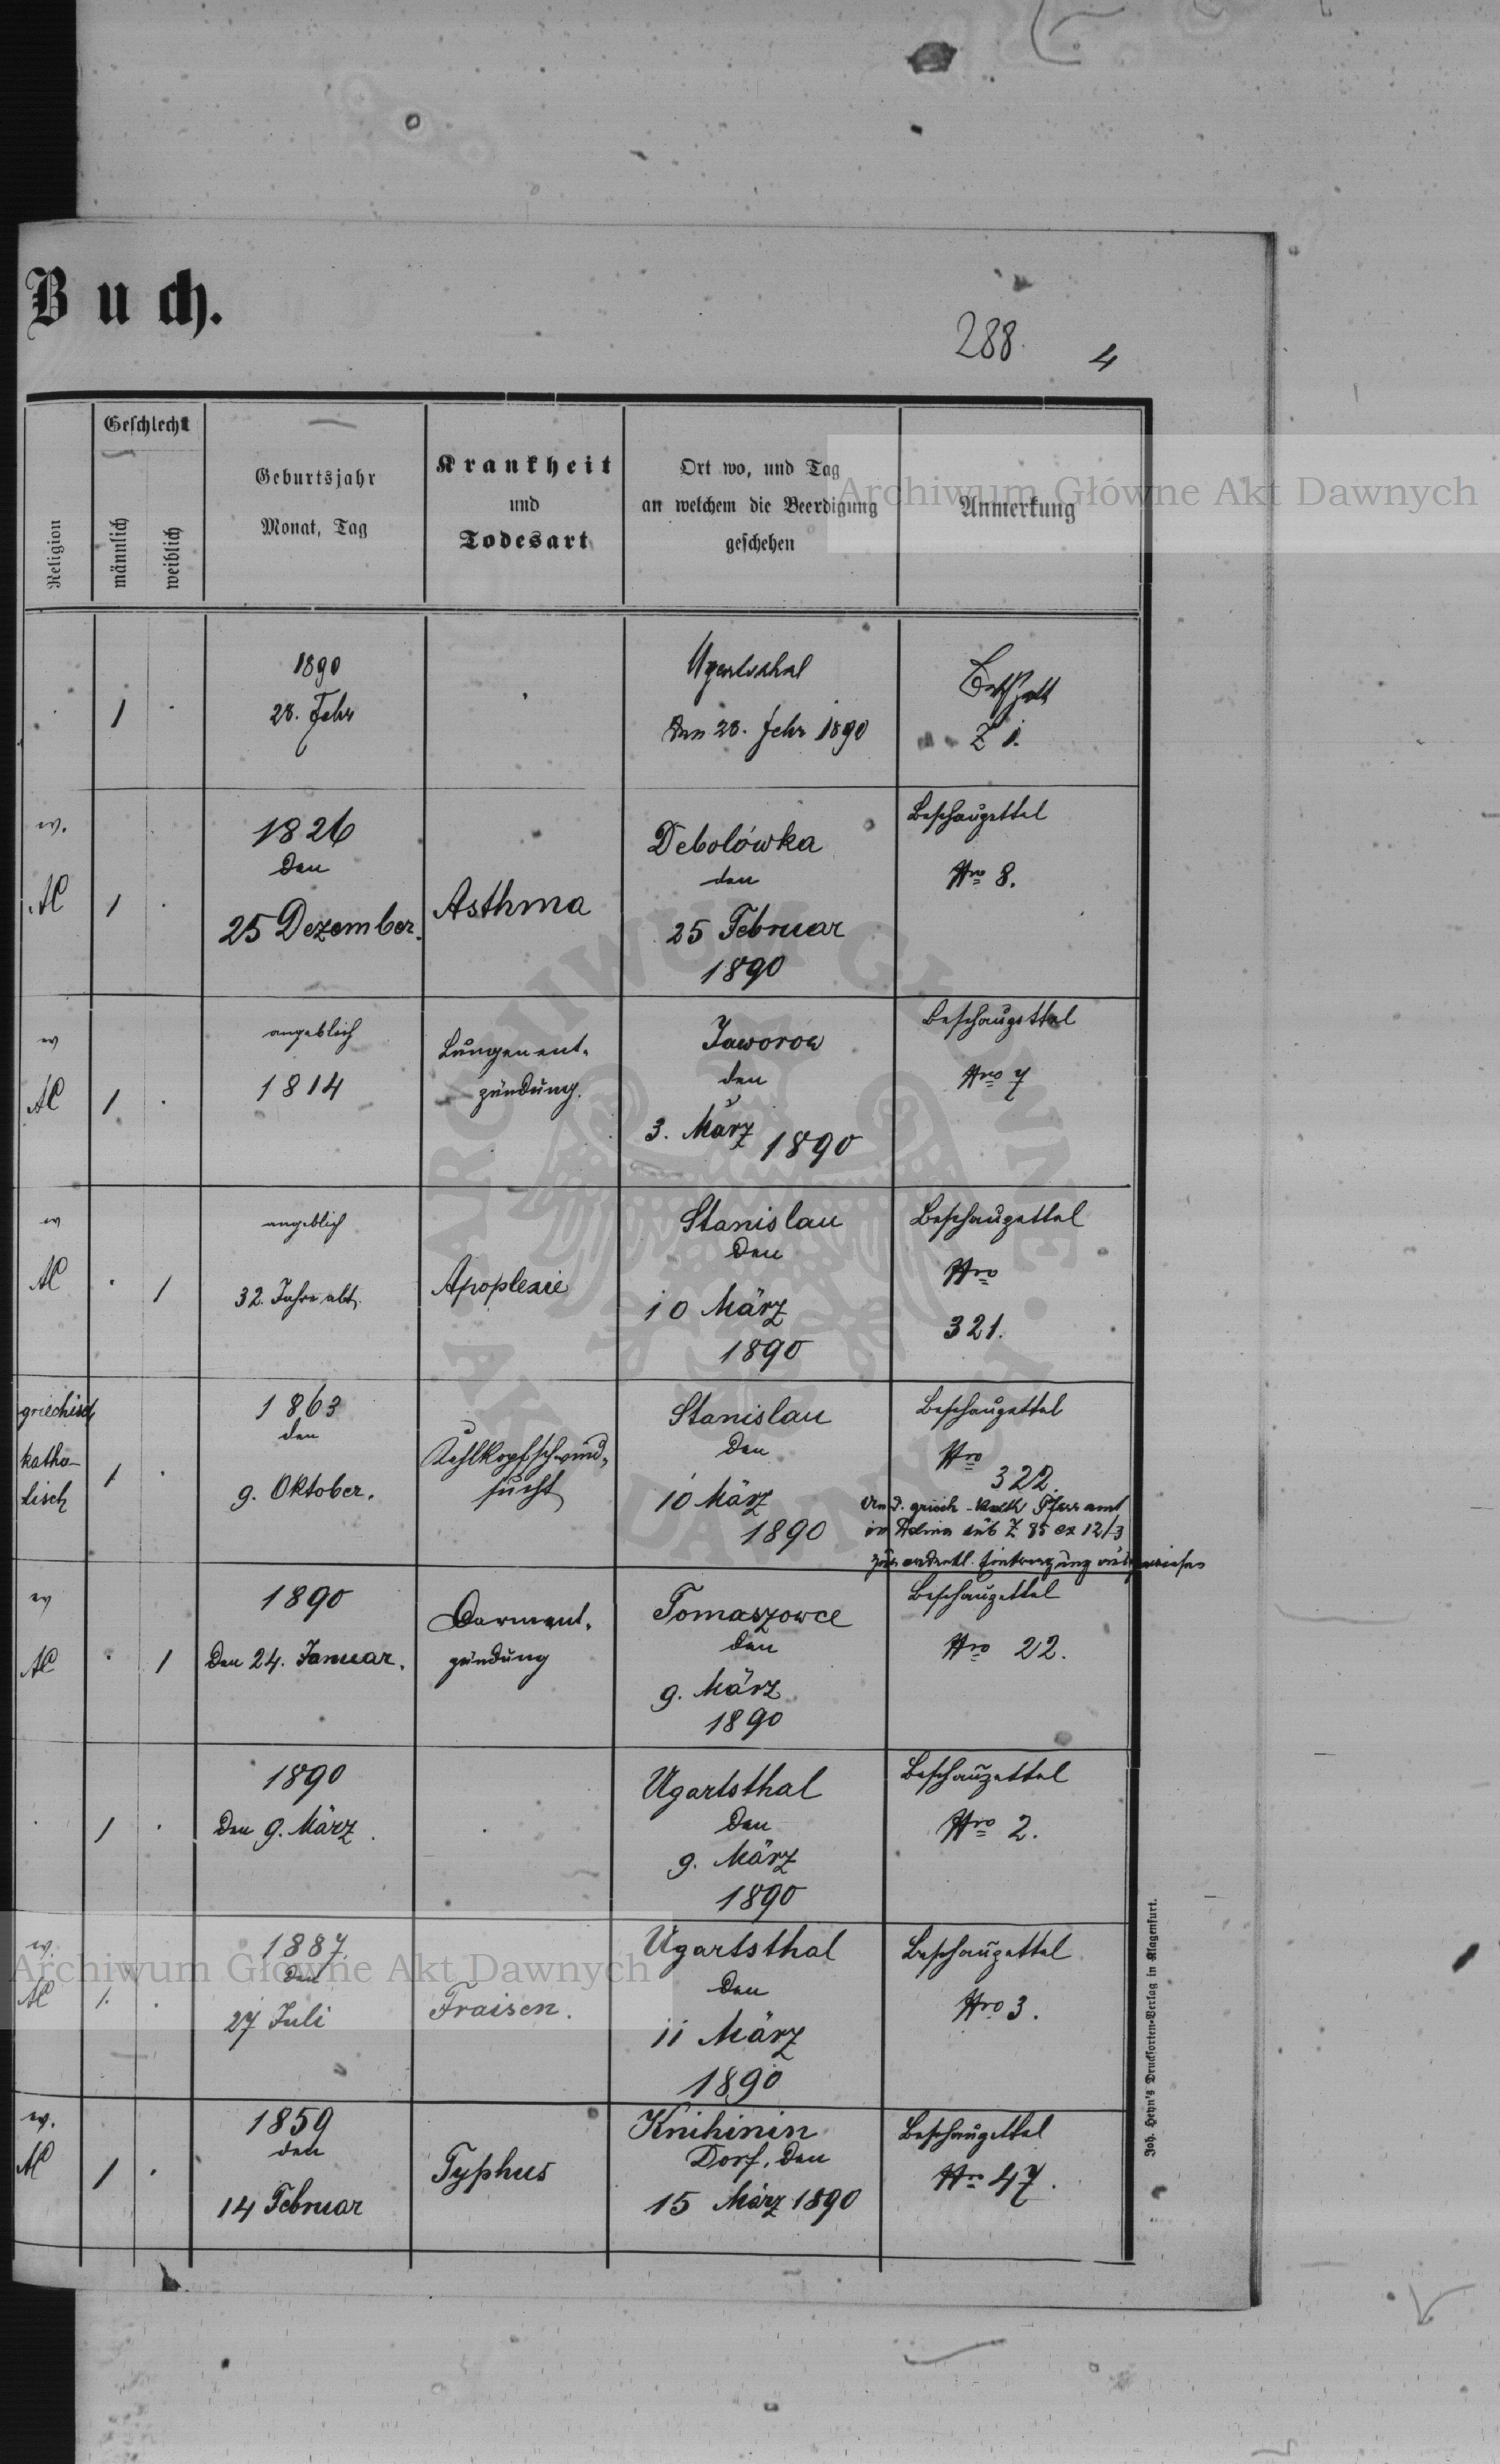 Buch.
288.
4
Religion
Geschlecht
männlich
weiblich
Geburtsjahr
Monat, Tag
Krankheit
und
Todesart
Ort wo, und Tag
an welchem die Beerdigung
geschehen
Anmerkung
Archiwum Główne Akt Dawnych
1
1890
28. Febr
Ugartsthal
den 28. Febr 1890
Z 1.
ev.
AC
1
1826
den
25 Dezember.
Asthma
Debolówka
den
25 Februar
1890
Beschauzettel
Nro 8.
ev
AC
1
angeblich
1814
Lungenent-
zündung.
Jaworow
den
3. März 1890
Beschauzettel
Nro 7
ev
AC
1
angeblich
32. Jahre alt.
Apoplexie
Stanislau
den
10 März
1890
Beschauzettel
Nro
321.
griechisch
katho-
lisch
1
1863
den
9. Oktober.
Kehlkopfschwind-
sucht
Stanislau
den
10 März
1890
Beschauzettel
Nro
322.
An d. griech-kath Pfarramt
in sub Z 85 ex 12/3
zur ordentl. Eintragung
ev
AC
1
1890
den 24. Januar.
Darment-
zündung
Tomaszowce
den
9. März
1890
Beschauzettel
Nro 22.
1
1890
den 9. März.
Ugartsthal
den
9. März
1890
Beschauzettel
Nro 2.
ev.
AC
1.
1887.
den
27 Juli
Fraisen.
Ugartsthal
den
11 März
1890
Beschauzettel
Nro 3.
ev.
AC
1
1859
den
14 Februar
Typhus
Knihinin
Dorf, den
15 März 1890
Beschauzettel
Nro 47.
Joh. Heyn's Drucksorten-Verlag in Klagenfurt.
Archiwum Główne Akt Dawnych
ARCHIWUM GŁÓWNE AKT DAWNYCH